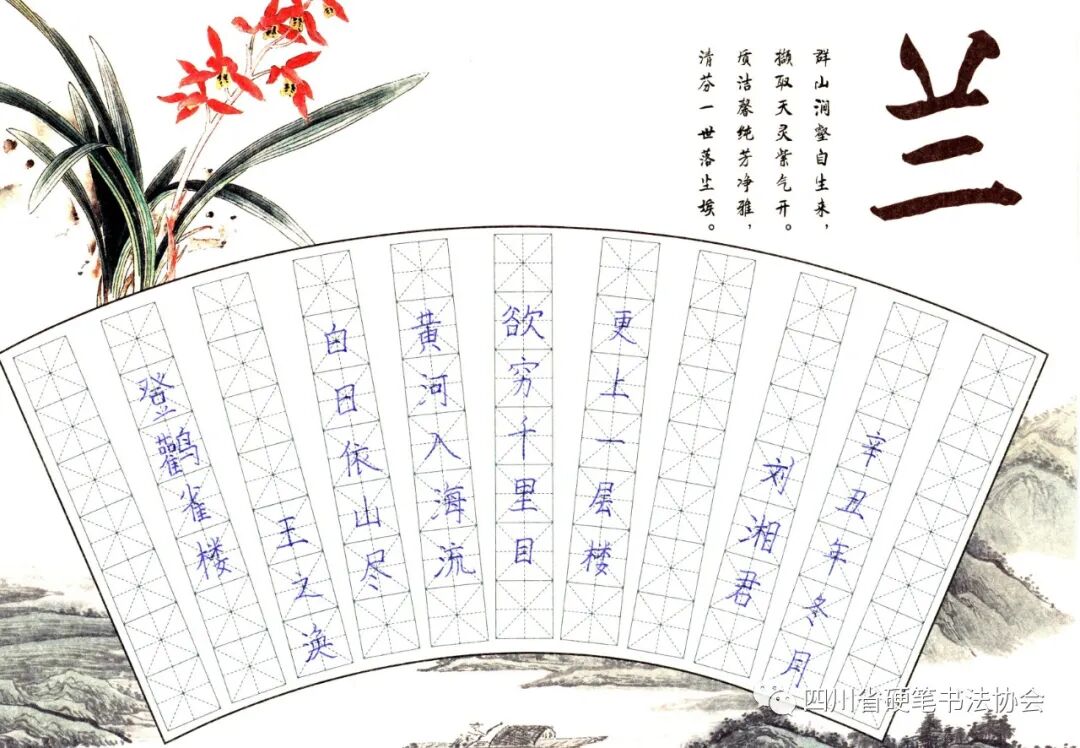 兰
群山涧壑自生来，
撷取天灵紫气开。
质洁馨纯芳净雅，
清芬一世落尘埃。
登鸛雀楼
王之涣
白日依山尽
黄河入海流
欲穷千里目
更上一层楼
刘湘君
辛丑年冬月
四川省硬笔书法协会